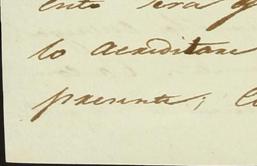 ento será q
lo acreditare
presente; C